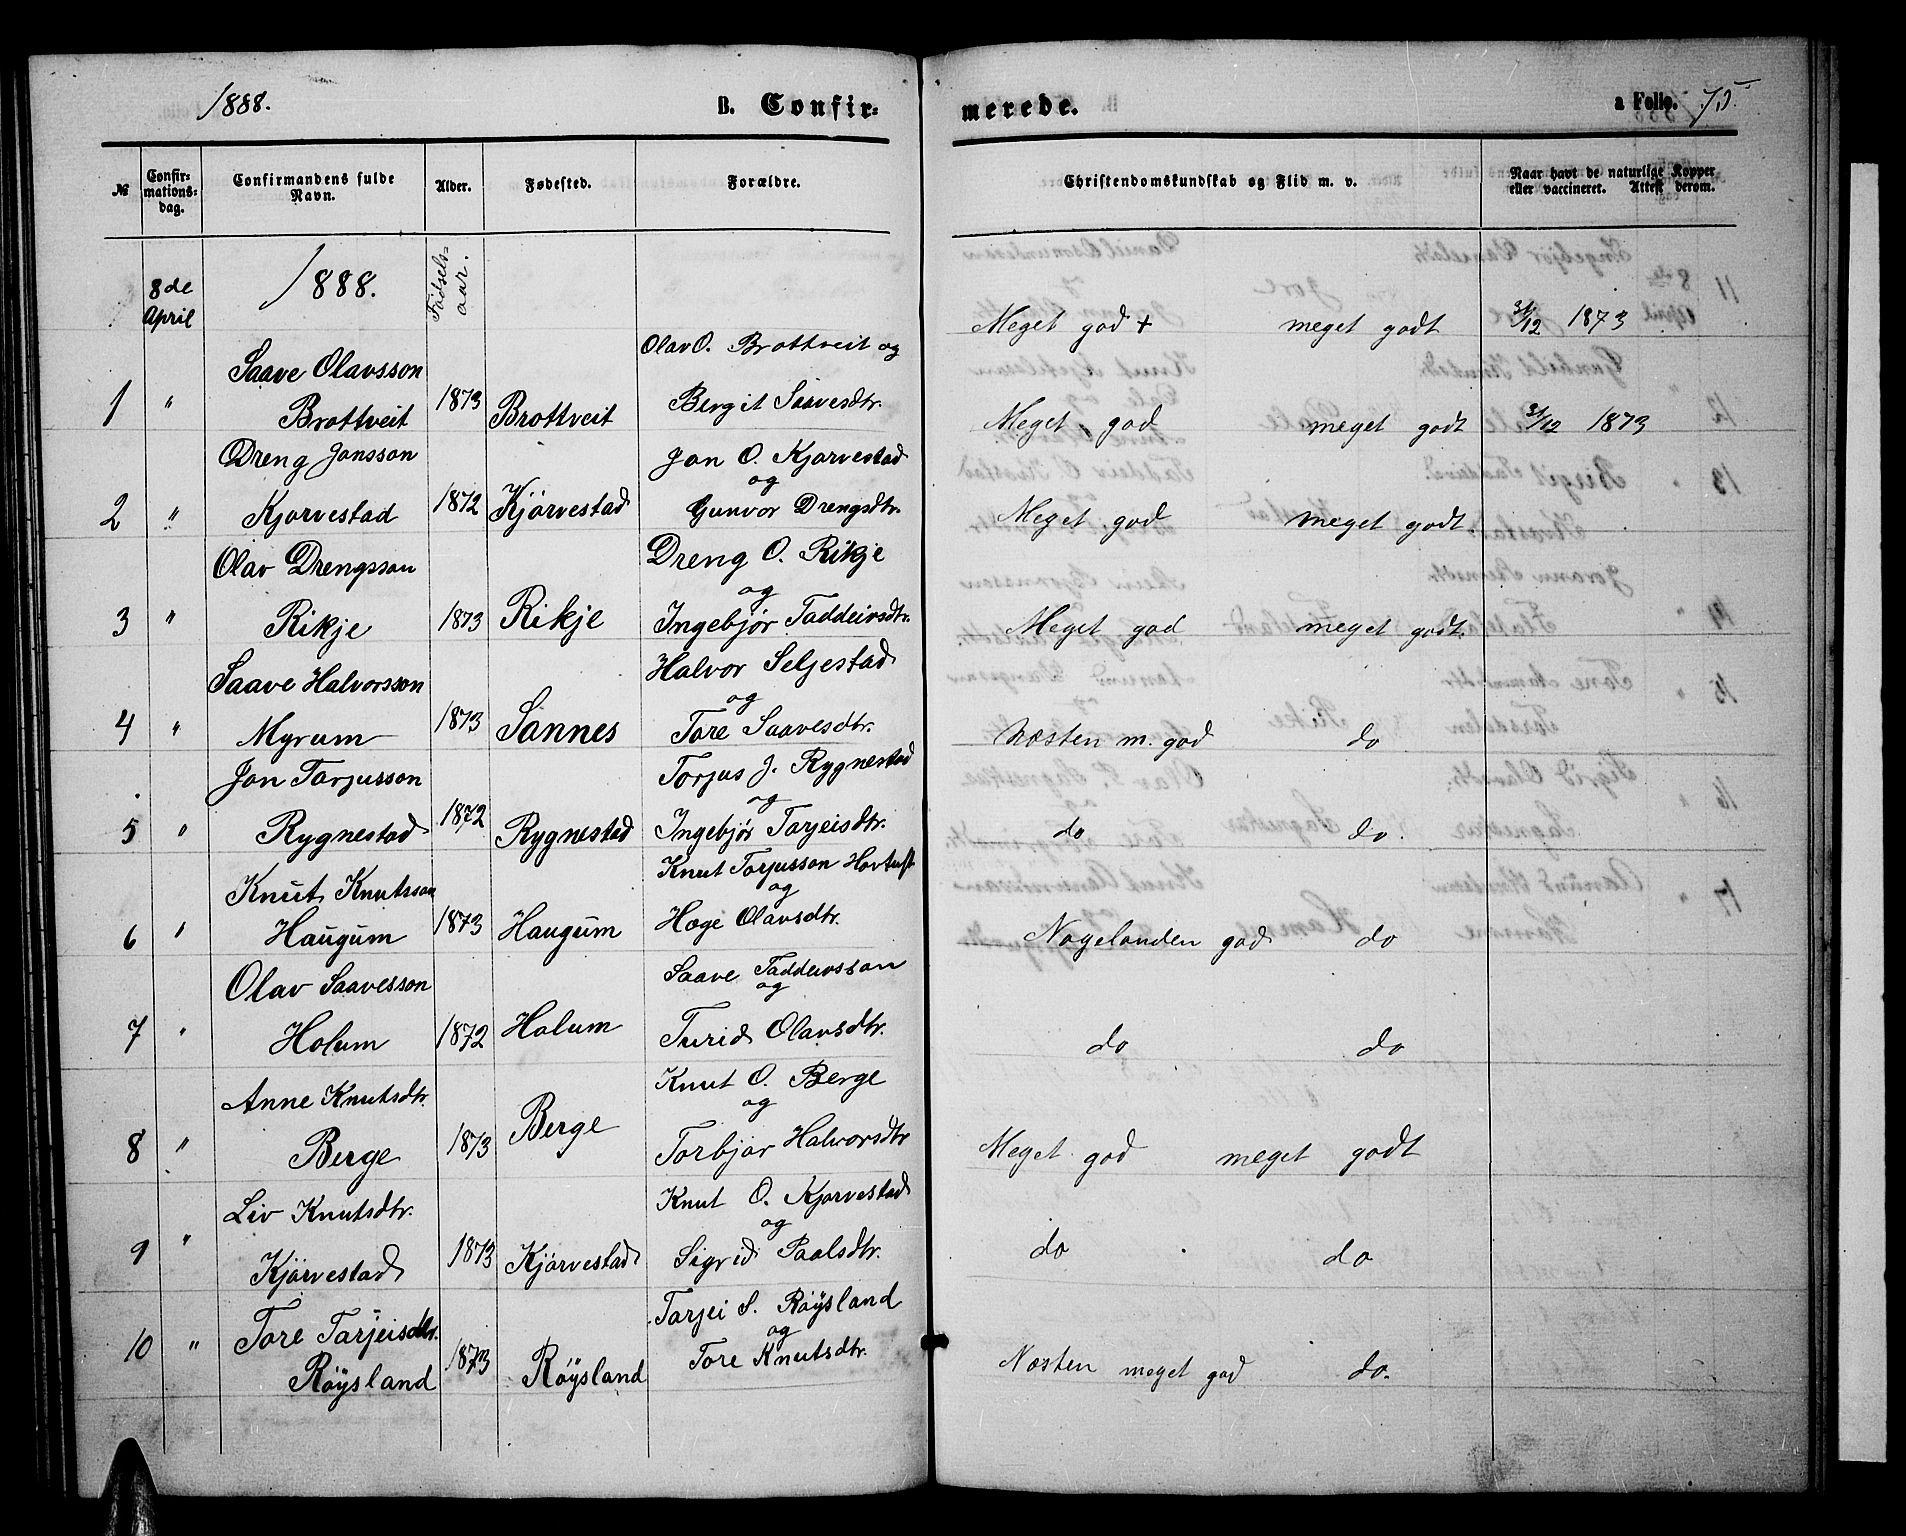 1888.
B. Confir-
merede.
a Folio. 75
№
Confir-
mations-
dag.
Confirmandens fulde
Navn.
Alder.
Fødested.
Forældre.
Christendomskundskab og Flid m. v.
Naar havt de naturlige Kopper
eller vaccineret. Attest derom.
8de
April
1888.
Fødsels-
aar.
Saave Olavsson
Olav O. Brottveit og
Meget god +
meget godt
31/12 1873
1 " Brottveit 1873 Brottveit Bergit Saavesdtr.
Dreng Jonsson
Jon O. Kjorvestad
og
Meget god
meget godt
31/12 1873
2 " Kjorvestad 1872 Kjörvestad Gunvor Drengsdtr.
Olav Drengsson
Dreng O. Rikje
og
Meget god
meget godt.
3 " Rikje 1873 Rikje Ingebjör Taddeivsdtr.
Saave Halvorsson
Halvor Seljestad
og
Meget god
meget godt.
4 " Myrum 1873 Sannes Tore Saavesdtr.
Jon Tarjusson
Torjus J. Rygnestad
og
Næsten m. god
do
5 " Rygnestad 1872 Rygnestad Ingebjör Tarjeisdtr.
Knut Knutsson
Knut Torjusson
og
do
do.
6 " Haugum 1873 Haugum Hæge Olavsdtr.
Olav Saavesson
Saave Taddeivsson
og
Nogelunden god
do
7 " Holum 1872 Holum Turid Olavsdtr.
Anne Knutsdtr.
Knut O. Berge
og
do
do
8 " Berge 1873 Berge Torbjør Halvorsdtr
Liv Knutsdtr.
Knut O. Kjorvestad
og
Meget god
meget godt
9 " Kjörvestad 1873 Kjörvestad Sigrid Paalsdtr.
Tore Tarjeisdtr.
Tarjei S. Röysland
og
do
do
10 " Röysland 1873 Röysland Tore Knutsdtr.
Næsten meget god
do.